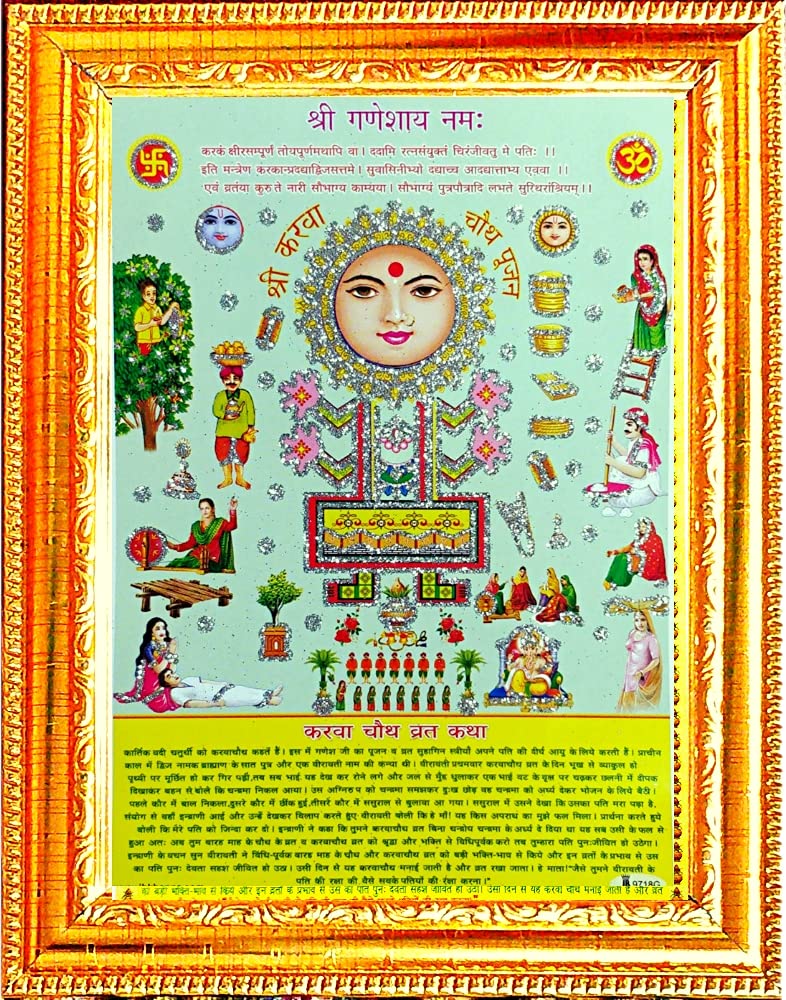 श्री गणेशाय नमः
करकं क्षीरसम्पूर्ण तोयपूर्णमथापि वा। ददामि रत्नसंयुक्तं चिरंजीवतु मे पतिः ।।
इति मन्त्रेण करकान्प्रदद्याद्विजसत्तमे। सुवासिनीभ्यो दद्याच्च आदद्यात्ताभ्य एववा ।।
एवं व्रतंया कुरुते नारी सौभाग्य काम्यया। सौभाग्यं पुत्रपौत्रादि लभते सुरिथरांश्रियम्।।
ॐ
श्री करवा चौथ पूजन
करवा चौथ व्रत कथा
कार्तिक वदी चतुर्थी को करवाचौथ कहते हैं। इस में गणेश जी का पूजन व व्रत सुहागिन स्त्रीयाँ अपने पति की दीर्घ आयु के लिये करती हैं। प्राचीन
काल में द्विज नामक ब्राह्मण के सात पुत्र और एक वीरावती नाम की कन्या थी। वीरावती प्रथमवार करवाचौथ व्रत के दिन भूख से व्याकुल हो
पृथ्वी पर मूर्छित हो कर गिर पड़ी,तब सब भाई यह देख कर रोने लगे और जल से मुँह धुलाकर एक भाई वट के वृक्ष पर चढ़कर छलनी में दीपक
दिखाकर बहन से बोले कि चन्द्रमा निकल आया। उस अग्निरुप को चन्द्रमा समझकर दुःख छोड़ वह चन्द्रमा को अर्ध्य देकर भोजन के लिये बैठी।
पहले कौर में बाल निकला,दुसरे कौर में छींक हुई,तीसरें कौर में ससुराल से बुलावा आ गया। ससुराल में उसने देखा कि उसका पति मरा पड़ा है.
संयोग से वहाँ इन्द्राणी आई और उन्हें देखकर विलाप करते हुए वीरावती बोली कि हे माँ! यह किस अपराध का मुझे फल मिला। प्रार्थना करते हुये
बोली कि मेरे पति को ज़िन्दा कर दो। इन्द्राणी ने कहा कि तुमने करवाचौथ व्रत बिना चन्द्रोय चन्द्रमा के अर्ध्य दे दिया था यह सब उसी के फल से
हुआ अतः अब तुम बारह माह के चौथ के व्रत व करवाचौथ व्रत को श्रृद्धा और भक्ति से विधिपूर्वक करो तब तुम्हारा पति पुनःजीवित हो उठेगा।
इन्द्राणी के वचन सुन वीरावती ने विधि-पूर्वक बारह माह के चौथ और करवाचौथ व्रत को बड़ी भक्ति-भाव से किये और इन व्रतों के प्रभाव से उस
का पति पुनः देवता सदृश जीवित हो उठा। उसी दिन से यह करवाचौथ मनाई जाती है और व्रत रखा जाता। हे माता!"जैसे तुमने वीरावती के
पति की रक्षा की वैसे सबके पतियों की रक्षा करना।"
9718G
को बड़ी भक्ति-भाव से किये और इन व्रतों के प्रभाव से उस का पति पुनः देवता सदृश जीवित हो उठा। उसी दिन से यह करवा चौथ मनाई जाती है और व्रत